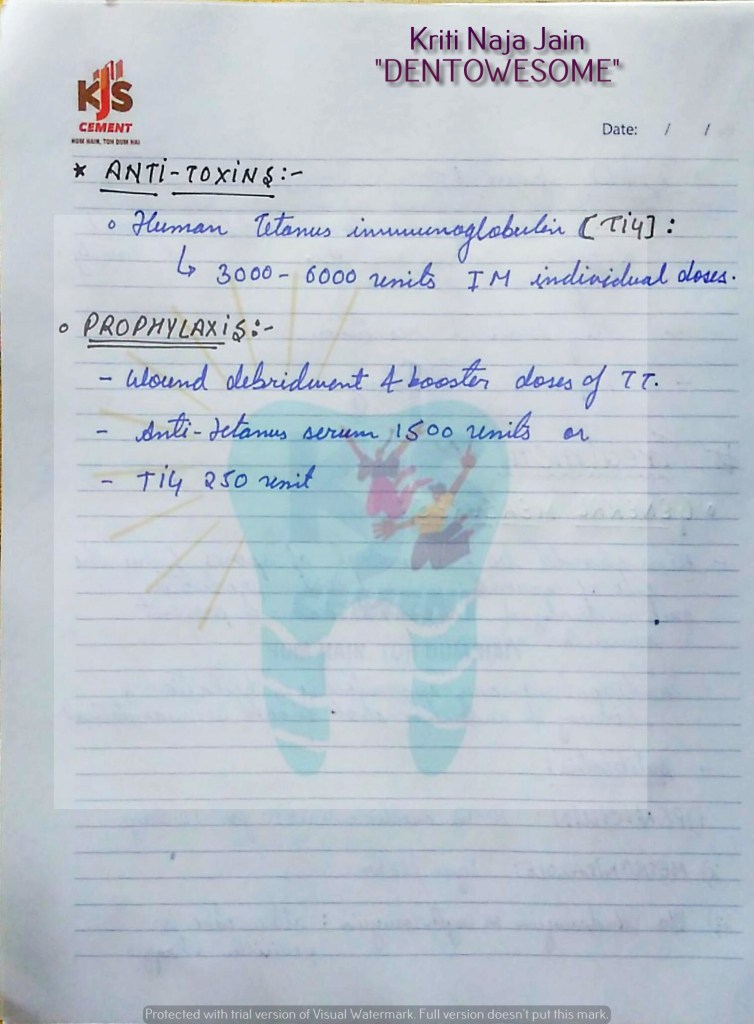 Kriti Naja Jain
"DENTOWESOME"
KJS
CEMENT
HUM HAIN, TOH DUM HAI
Date: / /
* ANTI-TOXINS:-
○ Human Tetanus immunoglobulin [TiG] :
↳ 3000 - 6000 units IM individual doses.
○ PROPHYLAXIS:-
- Wound debridment & booster doses of TT.
- Anti-tetanus serum 1500 units or
- TiG 250 unit
Protected with trial version of Visual Watermark. Full version doesn't put this mark.